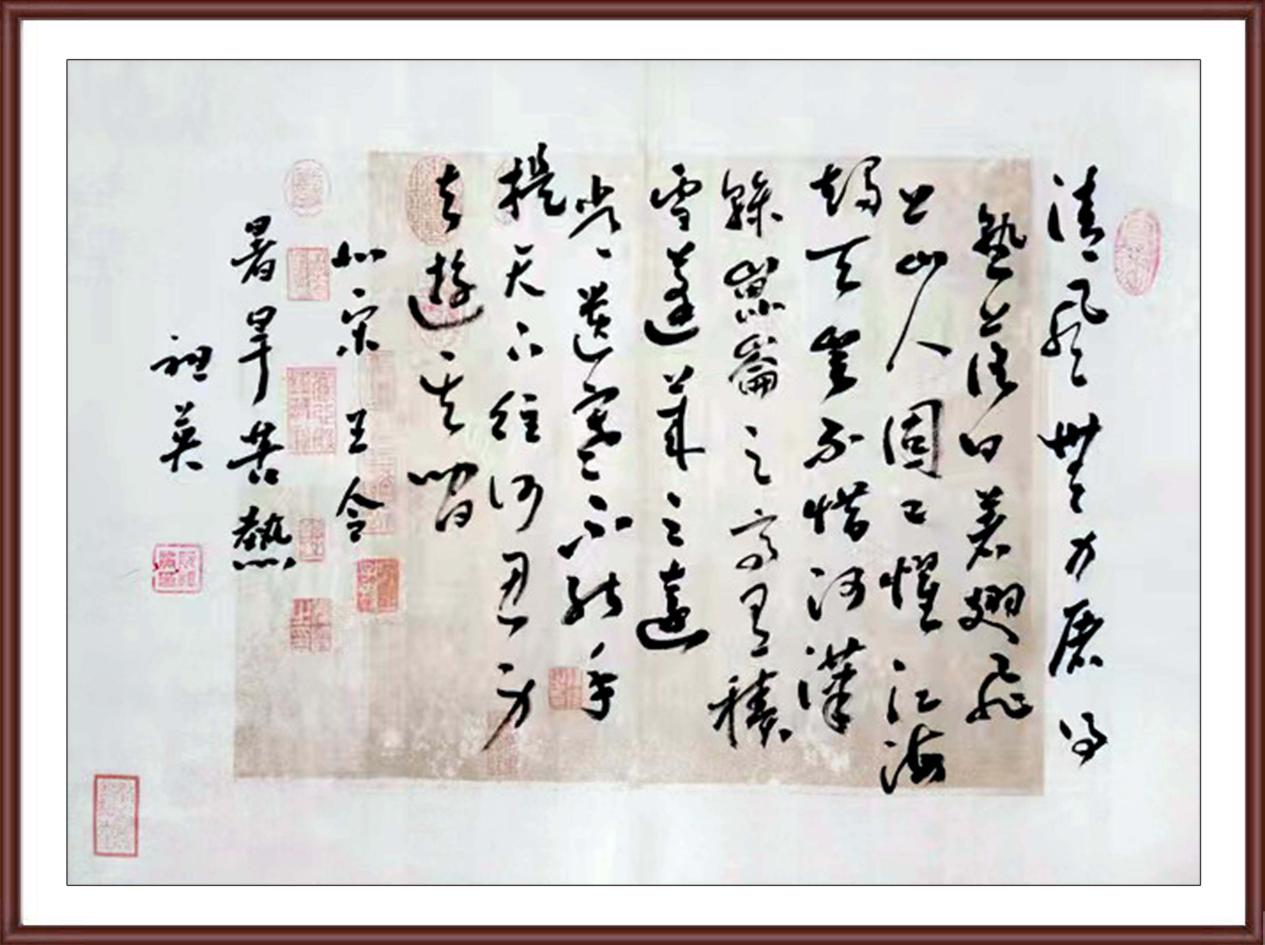 清風無力屠得
熱落日著翅飛
上山人固已懼江海
竭天豈不惜河漢
乾崑崙之高有積
雪蓬萊之遠
常遺寒不能手
提天下往何忍身
去遊其間
宋 王令
暑旱苦熱
祖英